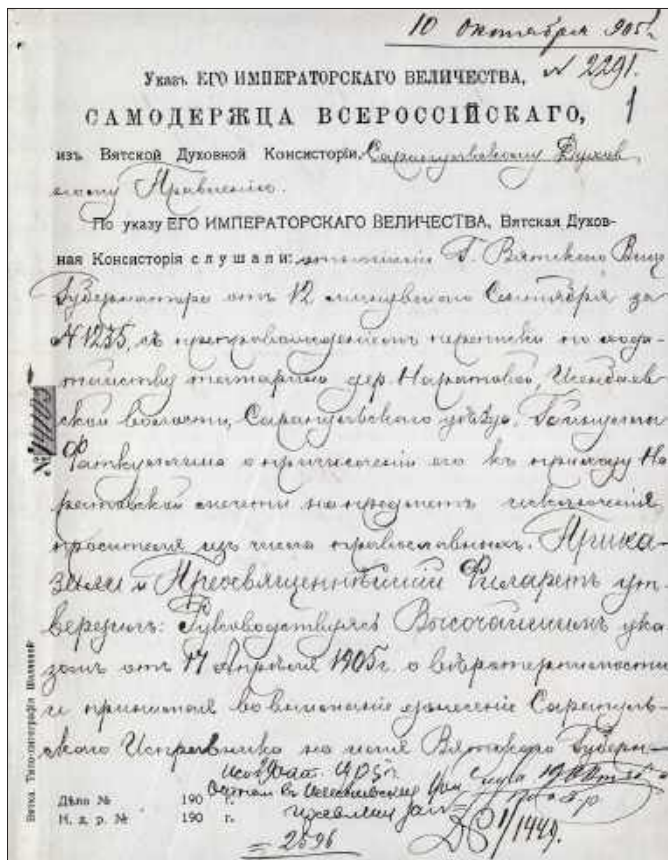 10 Октября 905 г.
№ 2291.
Указъ ЕГО ИМПЕРАТОРСКАГО ВЕЛИЧЕСТВА,
САМОДЕРЖЦА ВСЕРОССІЙСКАГО,
1
изъ Вятской Духовной Консисторіи, Сарапульскому Духов
ному Правленію.
По указу ЕГО ИМПЕРАТОРСКАГО ВЕЛИЧЕСТВА, Вятская Духов-
ная Консисторія слушали: отношеніе Г. Вятскаго Вице
Губернатора отъ 12 минувшаго Сентября за
№ 1235, съ препровожденіемъ переписки по хода-
тайству татарина дер. Наратовой, Исенбаев
ской волости, Сарапульскаго уѣзда,
о причисленіи его къ приходу На
ратовской мечети на предметъ исключенія
просителя изъ числа православныхъ. Прика-
зали и Преосвященнѣйшій Филаретъ ут
вердилъ: Руководствуясь Высочайшимъ ука
зомъ отъ 17 Апрѣля 1905 г. о вѣротерпимости
и принимая во вниманіе донесеніе Сарапуль-
скаго Исправника на имя Вятскаго Губерн-
Дѣло № 190 г.
Н. д. р. № 190 г.
= 2596
1/1449.
№ 14103
Вятка. Типо-литографія Шкляевой